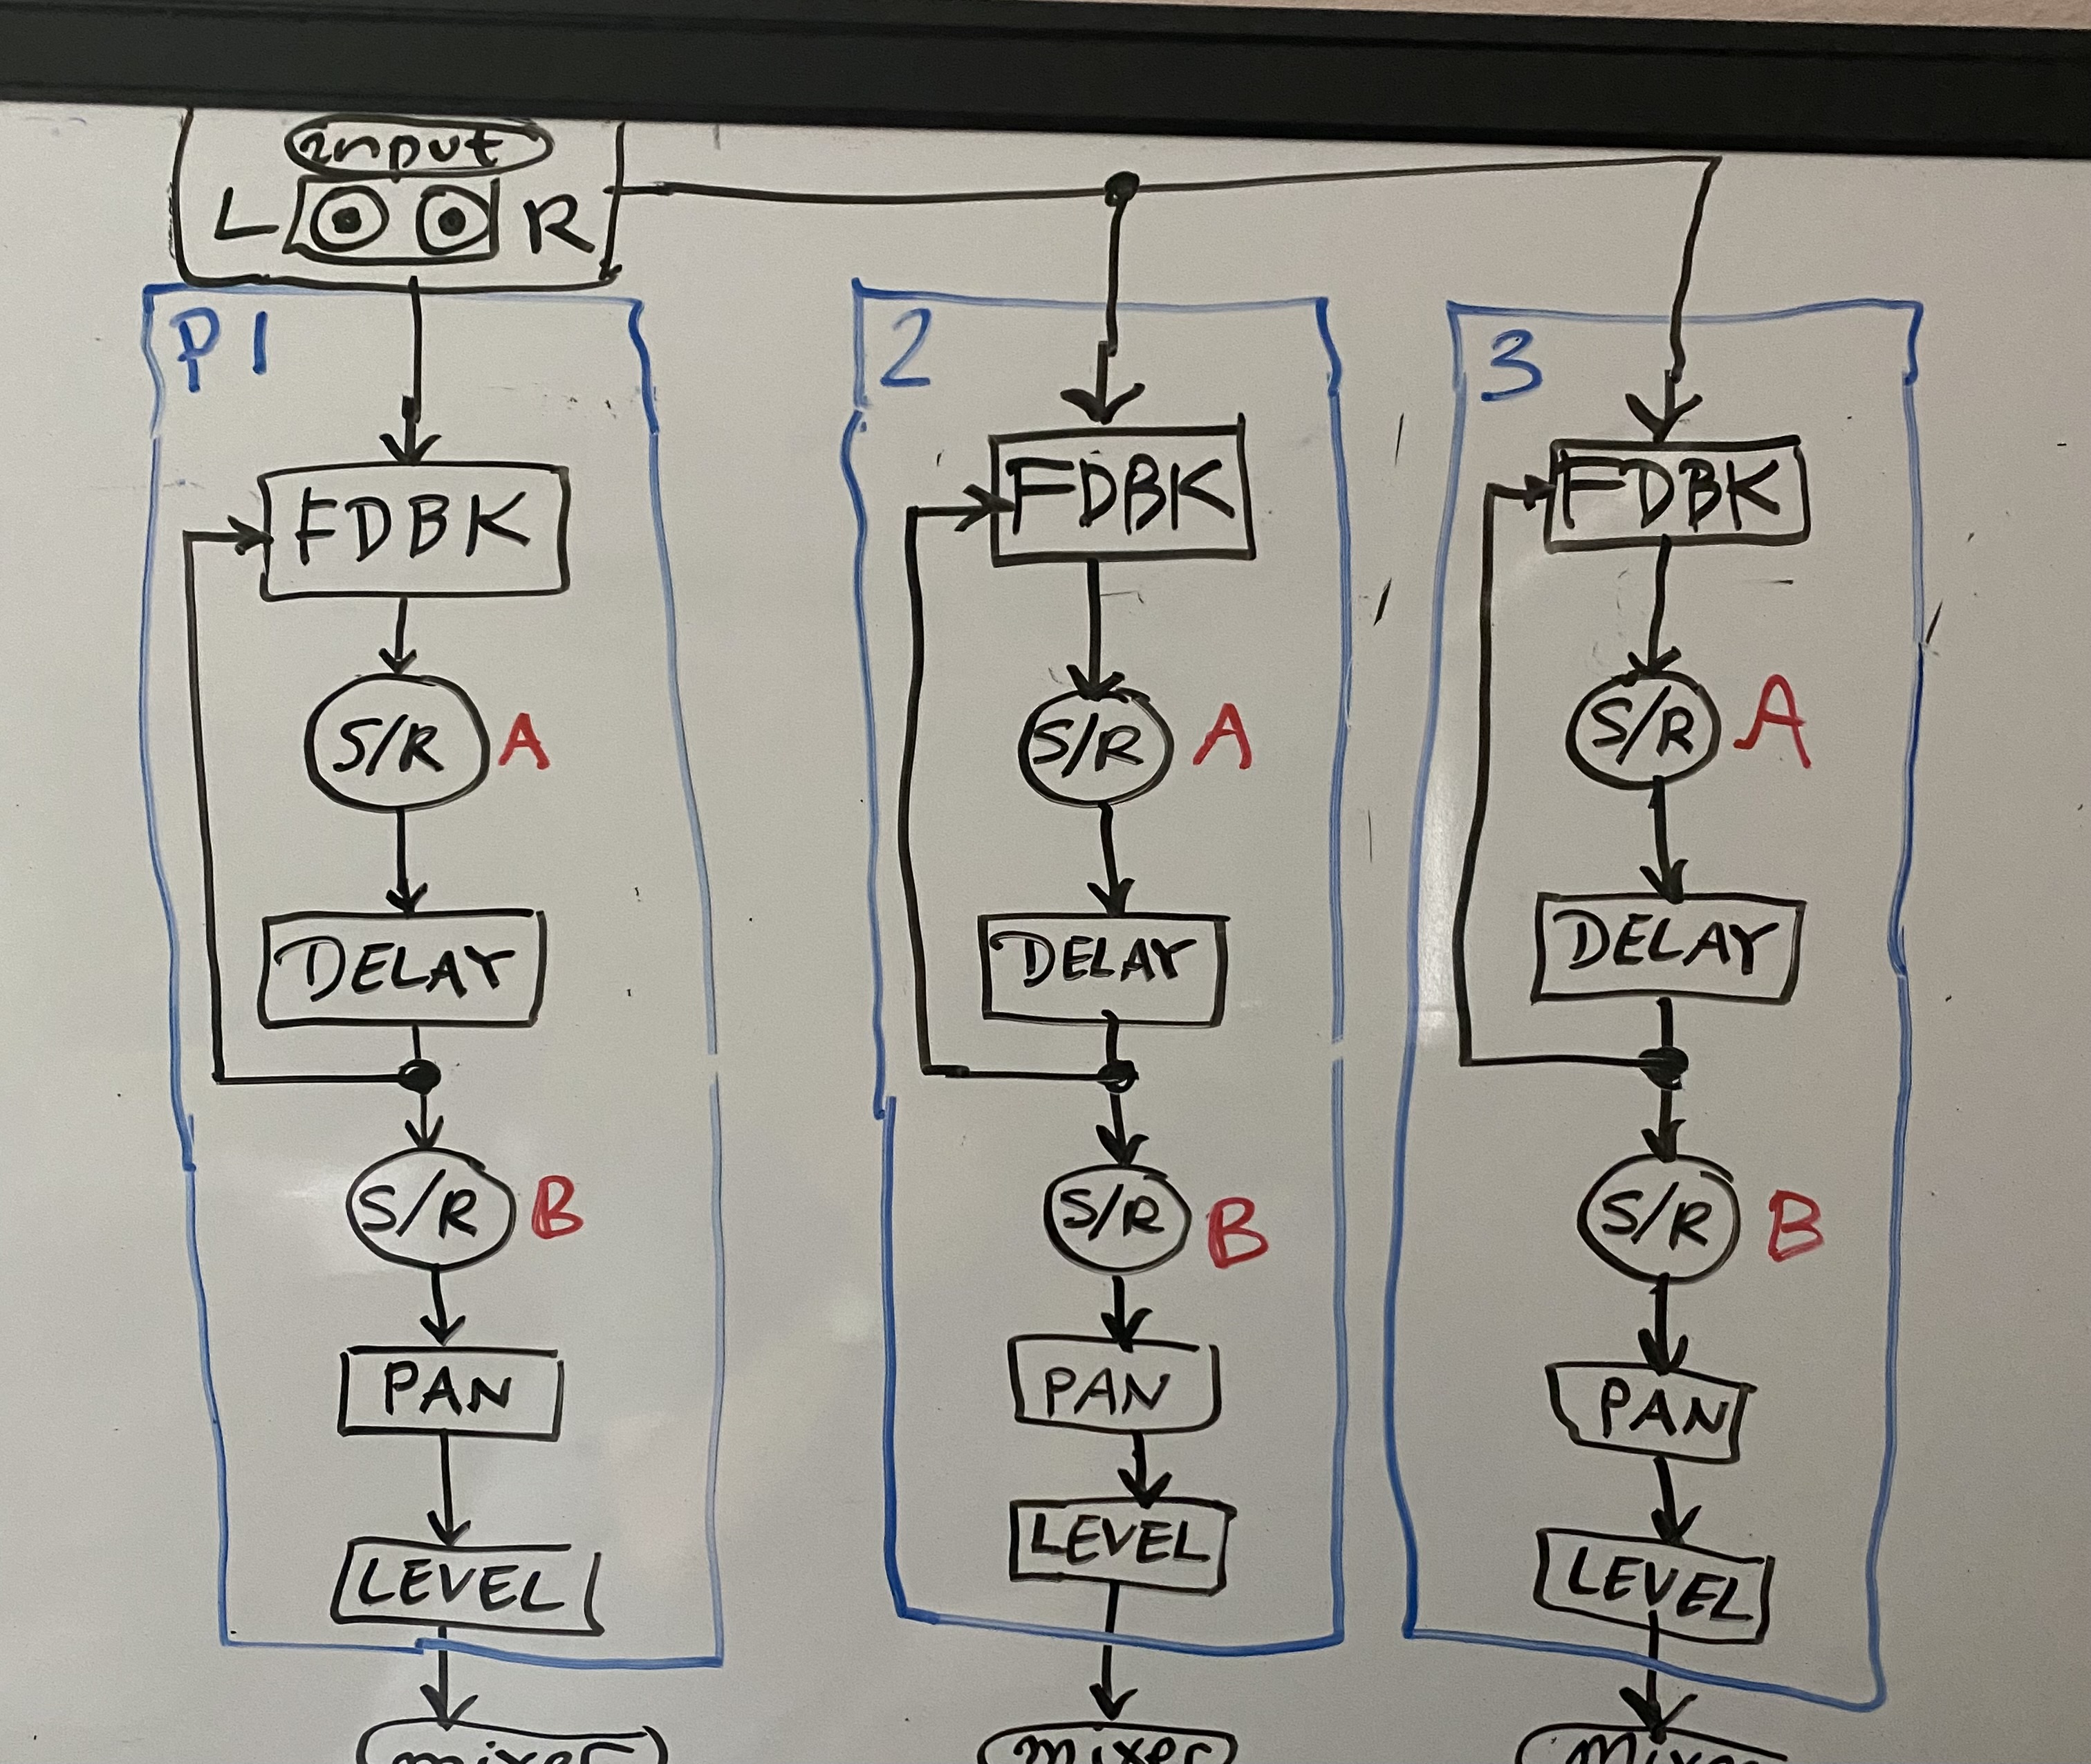 input
L R
P1
FDBK
S/R A
DELAY
S/R B
PAN
LEVEL
mixer
2
FDBK
S/R A
DELAY
S/R B
PAN
LEVEL
mixer
3
FDBK
S/R A
DELAY
S/R B
PAN
LEVEL
mixer